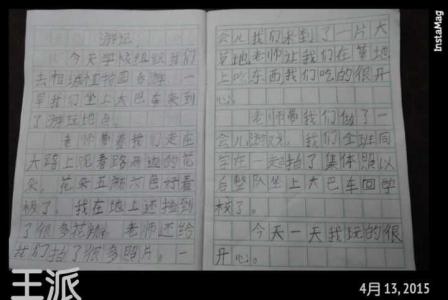 游记
今天学校组织我们
去相城植物园春游，一
早我们坐上大巴车来到
了游玩地点。
老师带着我们走在
大路上观看路两边的花
朵。花朵五颜六色好看
极了。我在地上还捡到
了很多花瓣。老师还给
我们拍了很多照片。一
会儿我们来到了一片大
草地老师让我们在草地
上吃东西我们吃的很开
心。
老师带我们做了一
会儿游戏。我们全班同
学在一起拍了集体照以
后整队坐上大巴车回学
校了。
今天一天我玩的很
开心。
王派
4月13,2015
InstaMag